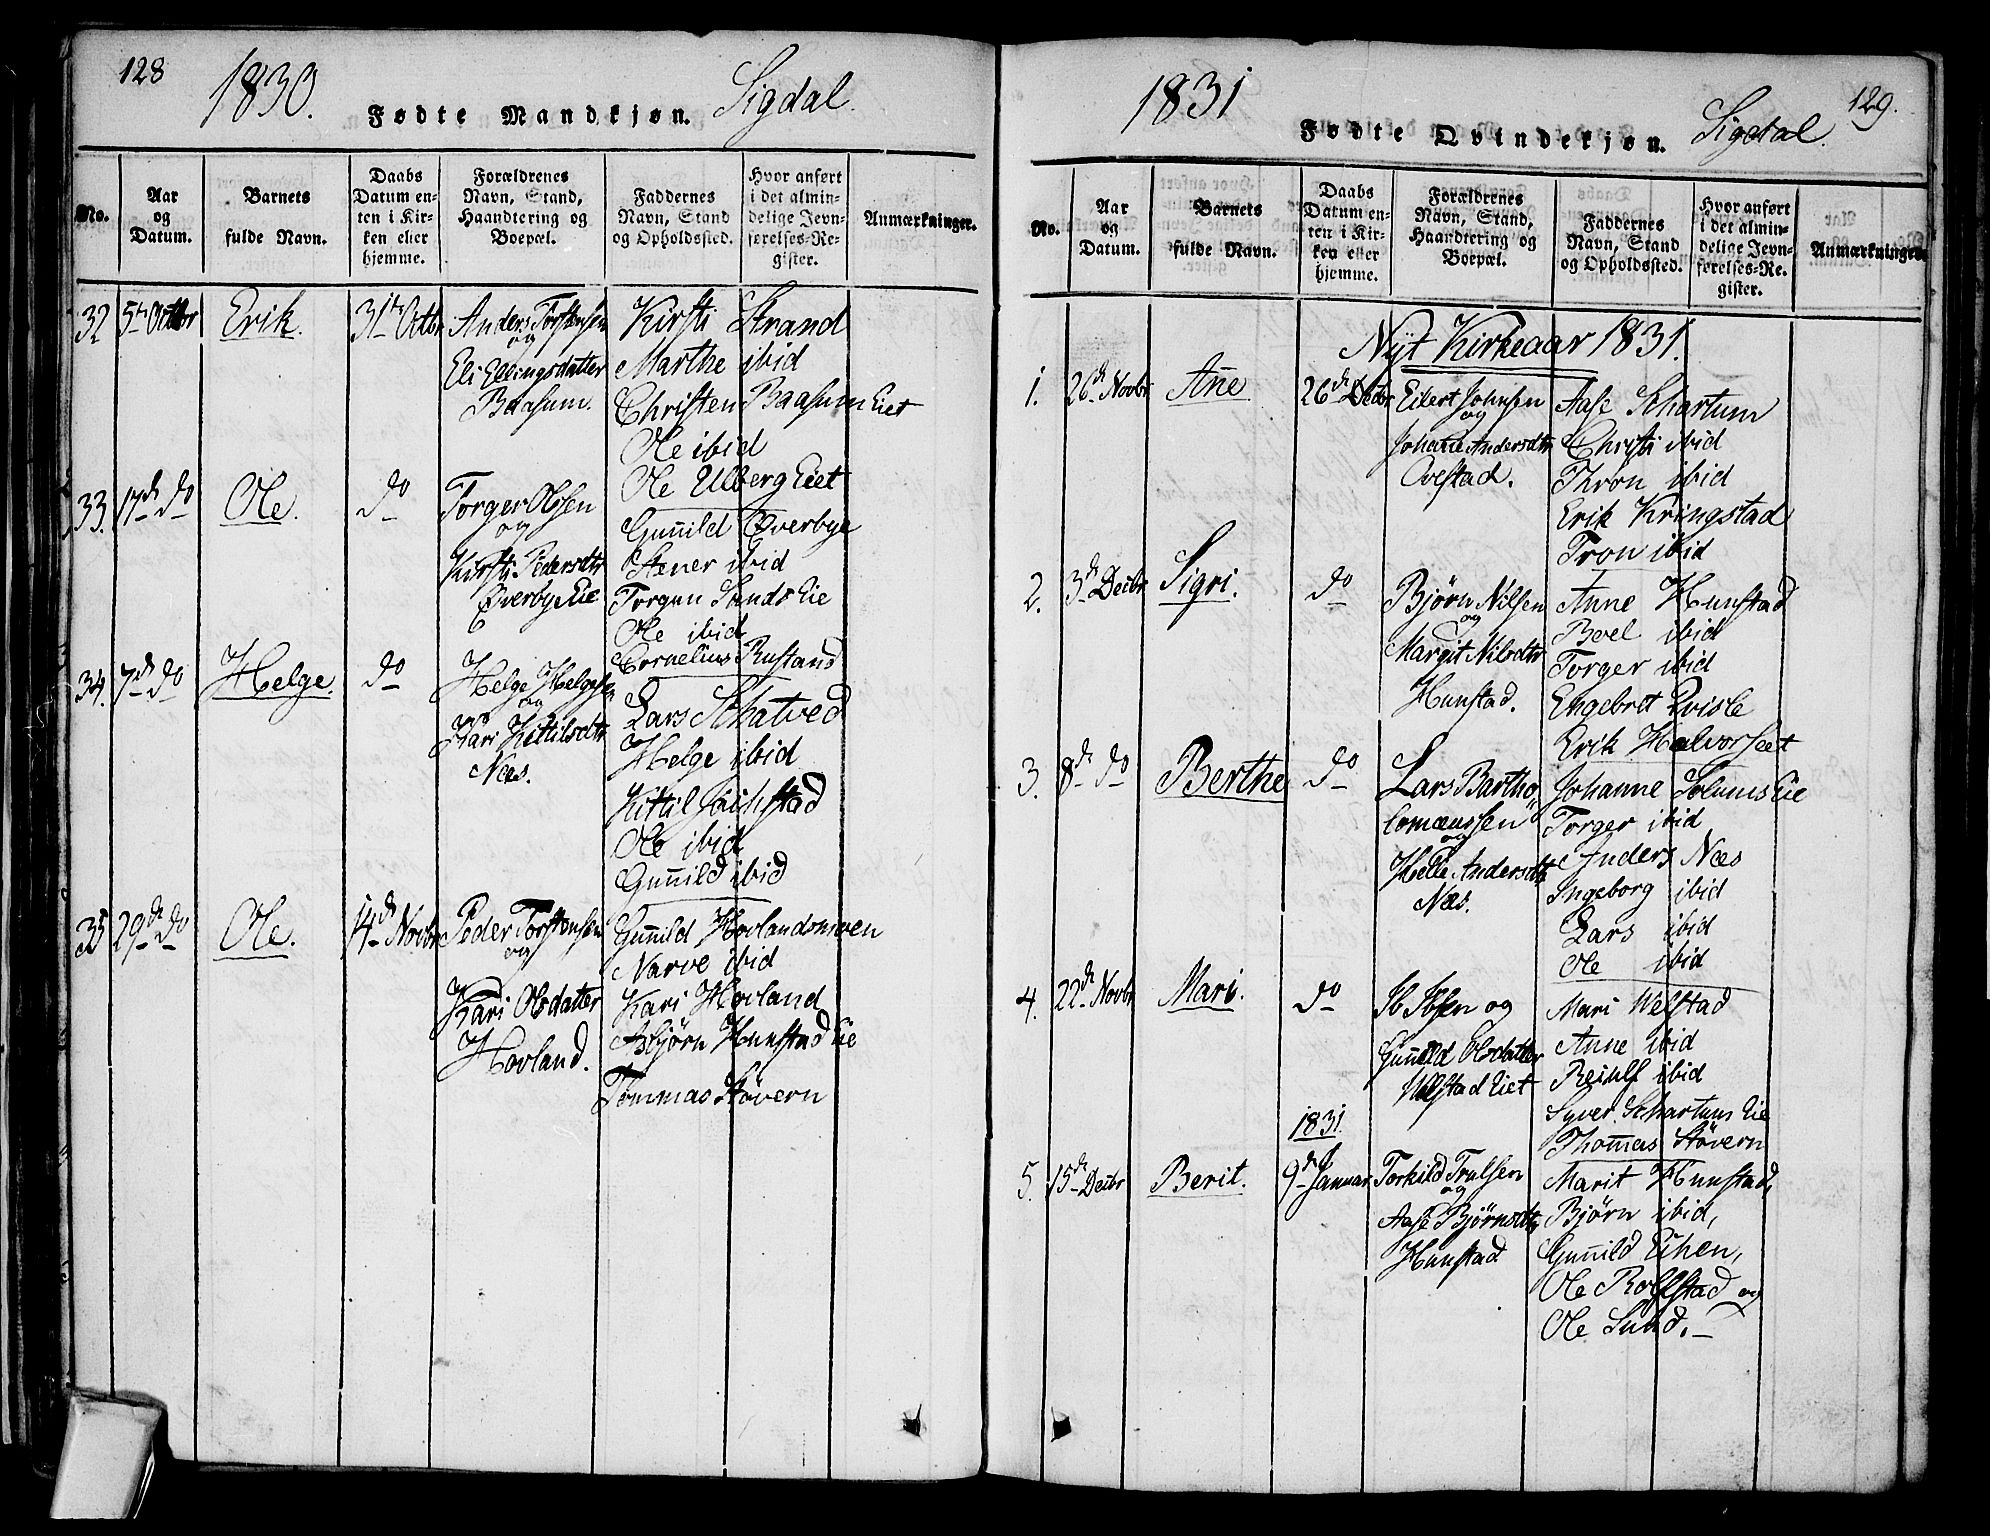 128
1830.
Fødte Mandkjøn.
Sigdal.
No.
Aar og Datum.
Barnets fulde Navn.
Daabs Datum enten i Kirken eller hjemme.
Forældrenes Navn, Stand, Haandtering og Boepæl.
Faddernes Navn, Stand og Opholdssted.
Hvor anført i det almindelige Jevnførelses-Register.
Anmærkninger.
32 5te Octbr Erik. 31te Octbr
Anders Torstensen
og
Eli Ellingsdatter
Baasum.
Kirsti Strand
Marthe ibid
Christen Baasum Eiet
Ole ibid
Ole Ulberg Eiet
33. 17de do Ole. do
Torger Olssen
og
Kirsti Pedersdtr
Øverbye Eie
Guñild Øverbye
Stener ibid
Torgun Sands Eie
Ole ibid
Cornelius Rustand
34. 7de do Helge. do
Helge Helgesen
og
Kari Kittilsdtr
Næs.
Lars Schatved
Helge ibid
Kittil
Ole ibid
Guñild ibid
35 29de do Ole. 14de Novbr
Peder Torstensen
og
Kari Olsdatter
Hovland.
Guñild Hovlandsmoen
Narve ibid
Kari Hovland
Asbjørn Hunstad Eie
Tommas Støvern
1831
Fødte Qvindekjøn.
Sigdal.
129.
No.
Aar og Datum.
Barnets fulde Navn.
Daabs Datum enten i Kirken eller hjemme.
Forældrenes Navn, Stand, Haandtering og Boepæl.
Faddernes Navn, Stand og Opholdssted.
Hvor anført i det almindelige Jevnførelses-Register.
Anmærkninger.
Nyt Kirkeaar 1831.
1. 26de Novbr Añe 26de Decbr
Eilert Johnsen
og
Johañe Andersdtr
Ovestad.
Aase Schartum
Christi ibid
Thron ibid
Erik Kringstad
Tron ibid
2. 3de Decbr Sigri. do
Bjørn Nilsen
og
Margit Nilsdtr
Hunstad.
Anne Hunstad
Boel ibid
Torger ibid
Engebret Qvisle
Erik Halvorseet
3. 8de do Berthe do
Lars Bartho
lomæussen
og
Helle Andersdtr
Næs.
Johanne Solums Eie
Torger ibid
Anders Næs
Ingeborg ibid
Lars ibid
Ole ibid
4. 22de Novbr Mari. do
Ib Ibsen og
Guñild Olsdatter
Welstad Eiet
Mari Welstad
Anne ibid
Reiulf ibid
Syver Schartums Eie
Thom̃as Støvern
1831.
5. 15de Decbr Berit. 9de Januar
Torkild Trulsen
og
Aase Bjørnsdtr
Hunstad
Marit Hunstad,
Bjørn ibid,
Guñild Eihen,
Ole Rolfstad og
Ole Sund.